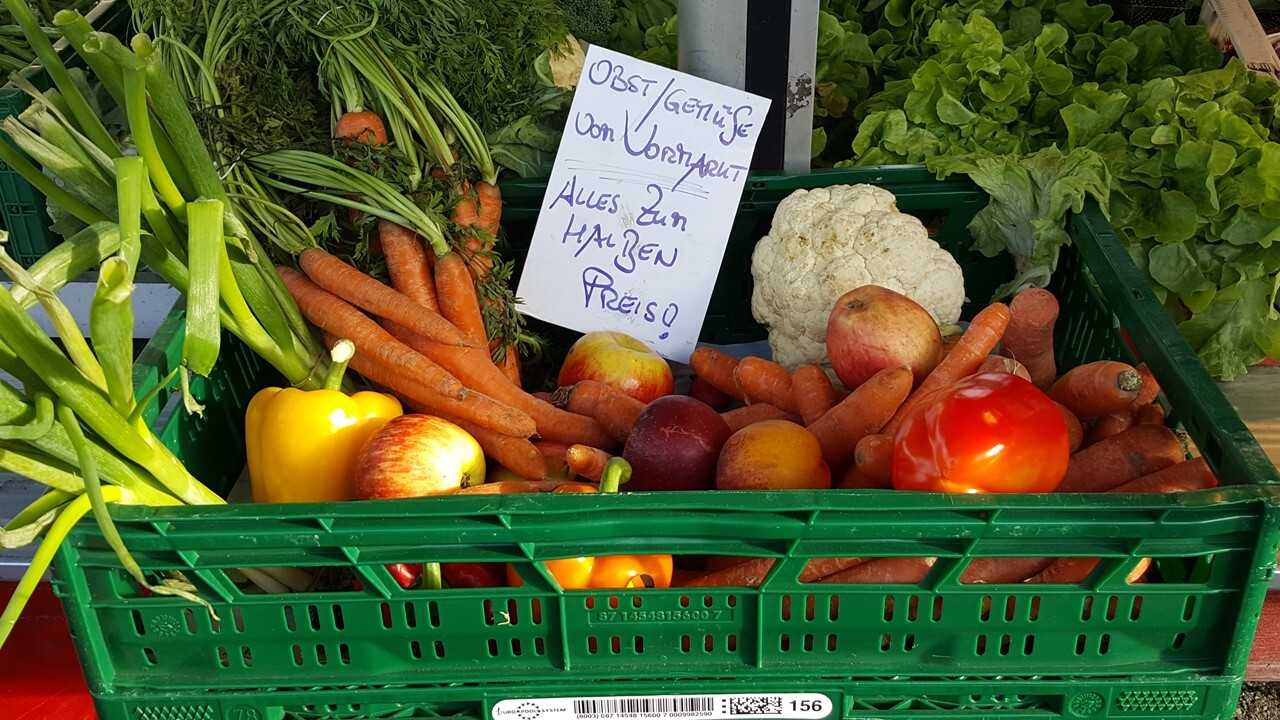 OBST/GEMÜSE
VOM VORMARKT
ALLES ZUM
HALBEN
PREIS!
87 1454815600 7
EUROPOOL SYSTEM
(8003) 087 14548 15600 7 0009982590
156